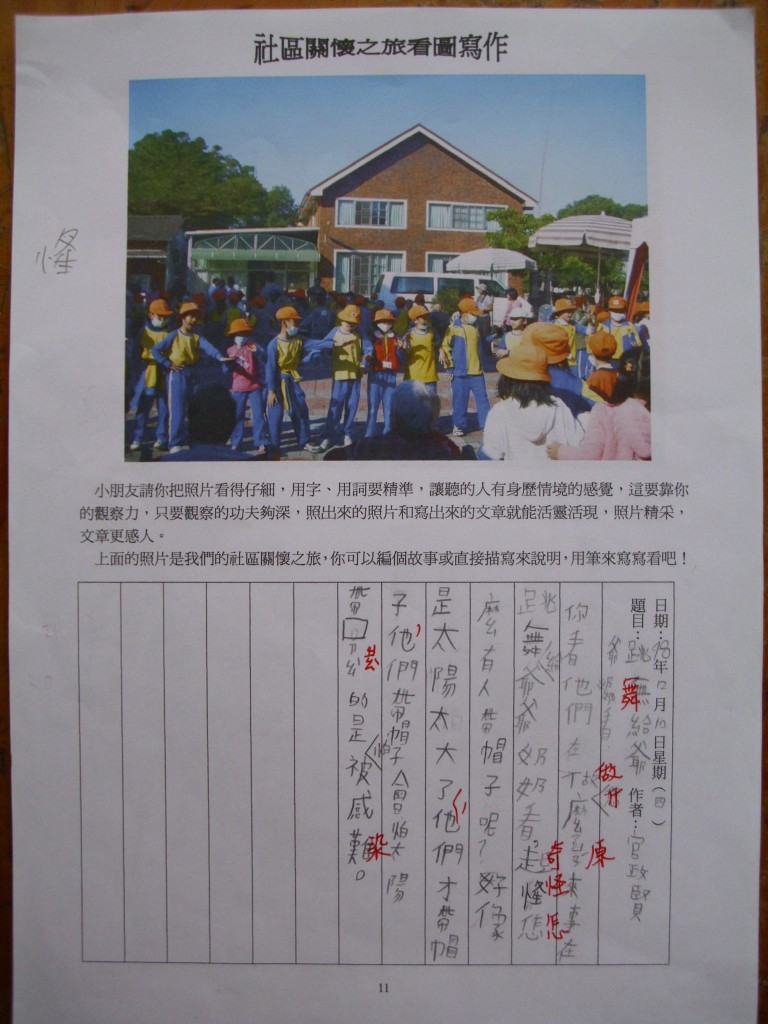 社區關懷之旅看圖寫作
小朋友請你把照片看得仔細，用字、用詞要精準，讓聽的人有身歷情境的感覺，這要靠你
的觀察力，只要觀察的功夫夠深，照出來的照片和寫出來的文章就能活靈活現，照片精采，
文章更感人。
上面的照片是我們的社區關懷之旅，你可以編個故事或直接描寫來說明，用筆來寫寫看吧！
日期：98年12月10日星期（四）
題目：跳舞給爺 作者：宮政賢
爺奶奶看
你看他們在做什麼 原來事在
跳舞給爺爺奶奶看，奇怪怎
麼有人帶帽子呢？好像
是太陽太大了，他們才帶帽
子，他們帶帽子會怕太陽
帶口罩的是怕被感染。
11